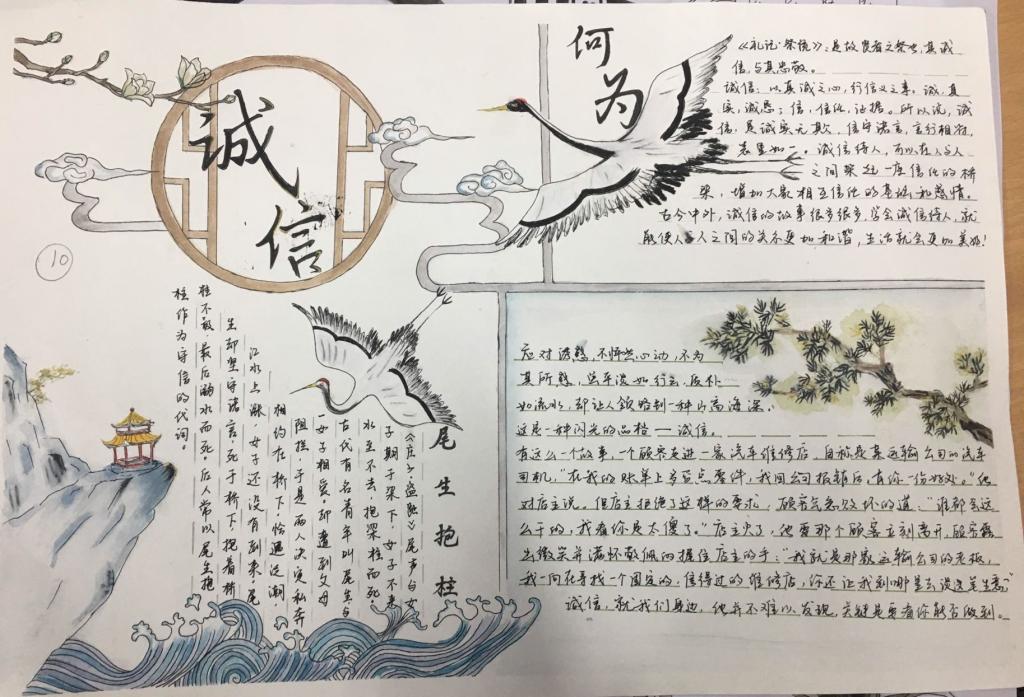 诚信
何为
《礼记·祭统》：是故贤者之祭也，其诚
信，与其忠敬。
诚信：以真诚之心，行信义之事。诚，真
实，诚恳；信，信任，证据。所以说，诚
信，是诚实无欺，信守诺言，言行相符，
表里如一。诚信待人，可以在人与人
之间架起一座信任的桥
梁，增加大家相互信任的基础和感情。
古今中外，诚信的故事很多很多，学会诚信待人，就
能使人与人之间的关系更加和谐，生活就会更加美好！
10
尾生抱柱
《庄子·盗跖》尾声与女
子期于梁下，女子不来，
水至不去，抱梁柱而死
古代有名青年叫尾生与
一女子相爱，却遭到父母
阻挠，于是两人决定私奔
相约在桥下，恰遇泛潮，
江水上涨，女子还没有到来，尾
生却坚守诺言死于桥下，抱着桥
柱不放，最后溺水而死，后人常以尾生抱
柱作为守信的代词。
应对诱惑，不怦然心动，不为
其所惑，
如流水，却让人领略到一种山高海深。
这是一种闪光的品格——诚信。
有这么一个故事，一个顾客走进一家汽车维修店，自称是某运输公司的汽车
司机，“在我的账单上多写点零件，我回公司报销后，有你一份好处。”他
对店主说。但店主拒绝了这样的要求，顾客气急败坏的道：“谁都会这
么干的，我看你是太傻了。”店主火了，他要那个顾客立刻离开，顾客露
出微笑并满怀敬佩的握住店主的手：“我就是那家运输公司的老板，
我一向在寻找一个固定的，信得过的维修店，你还让我到哪里去谈这笔生意”
诚信，就我们身边，他并不难以发现，关键是要看你能否做到。